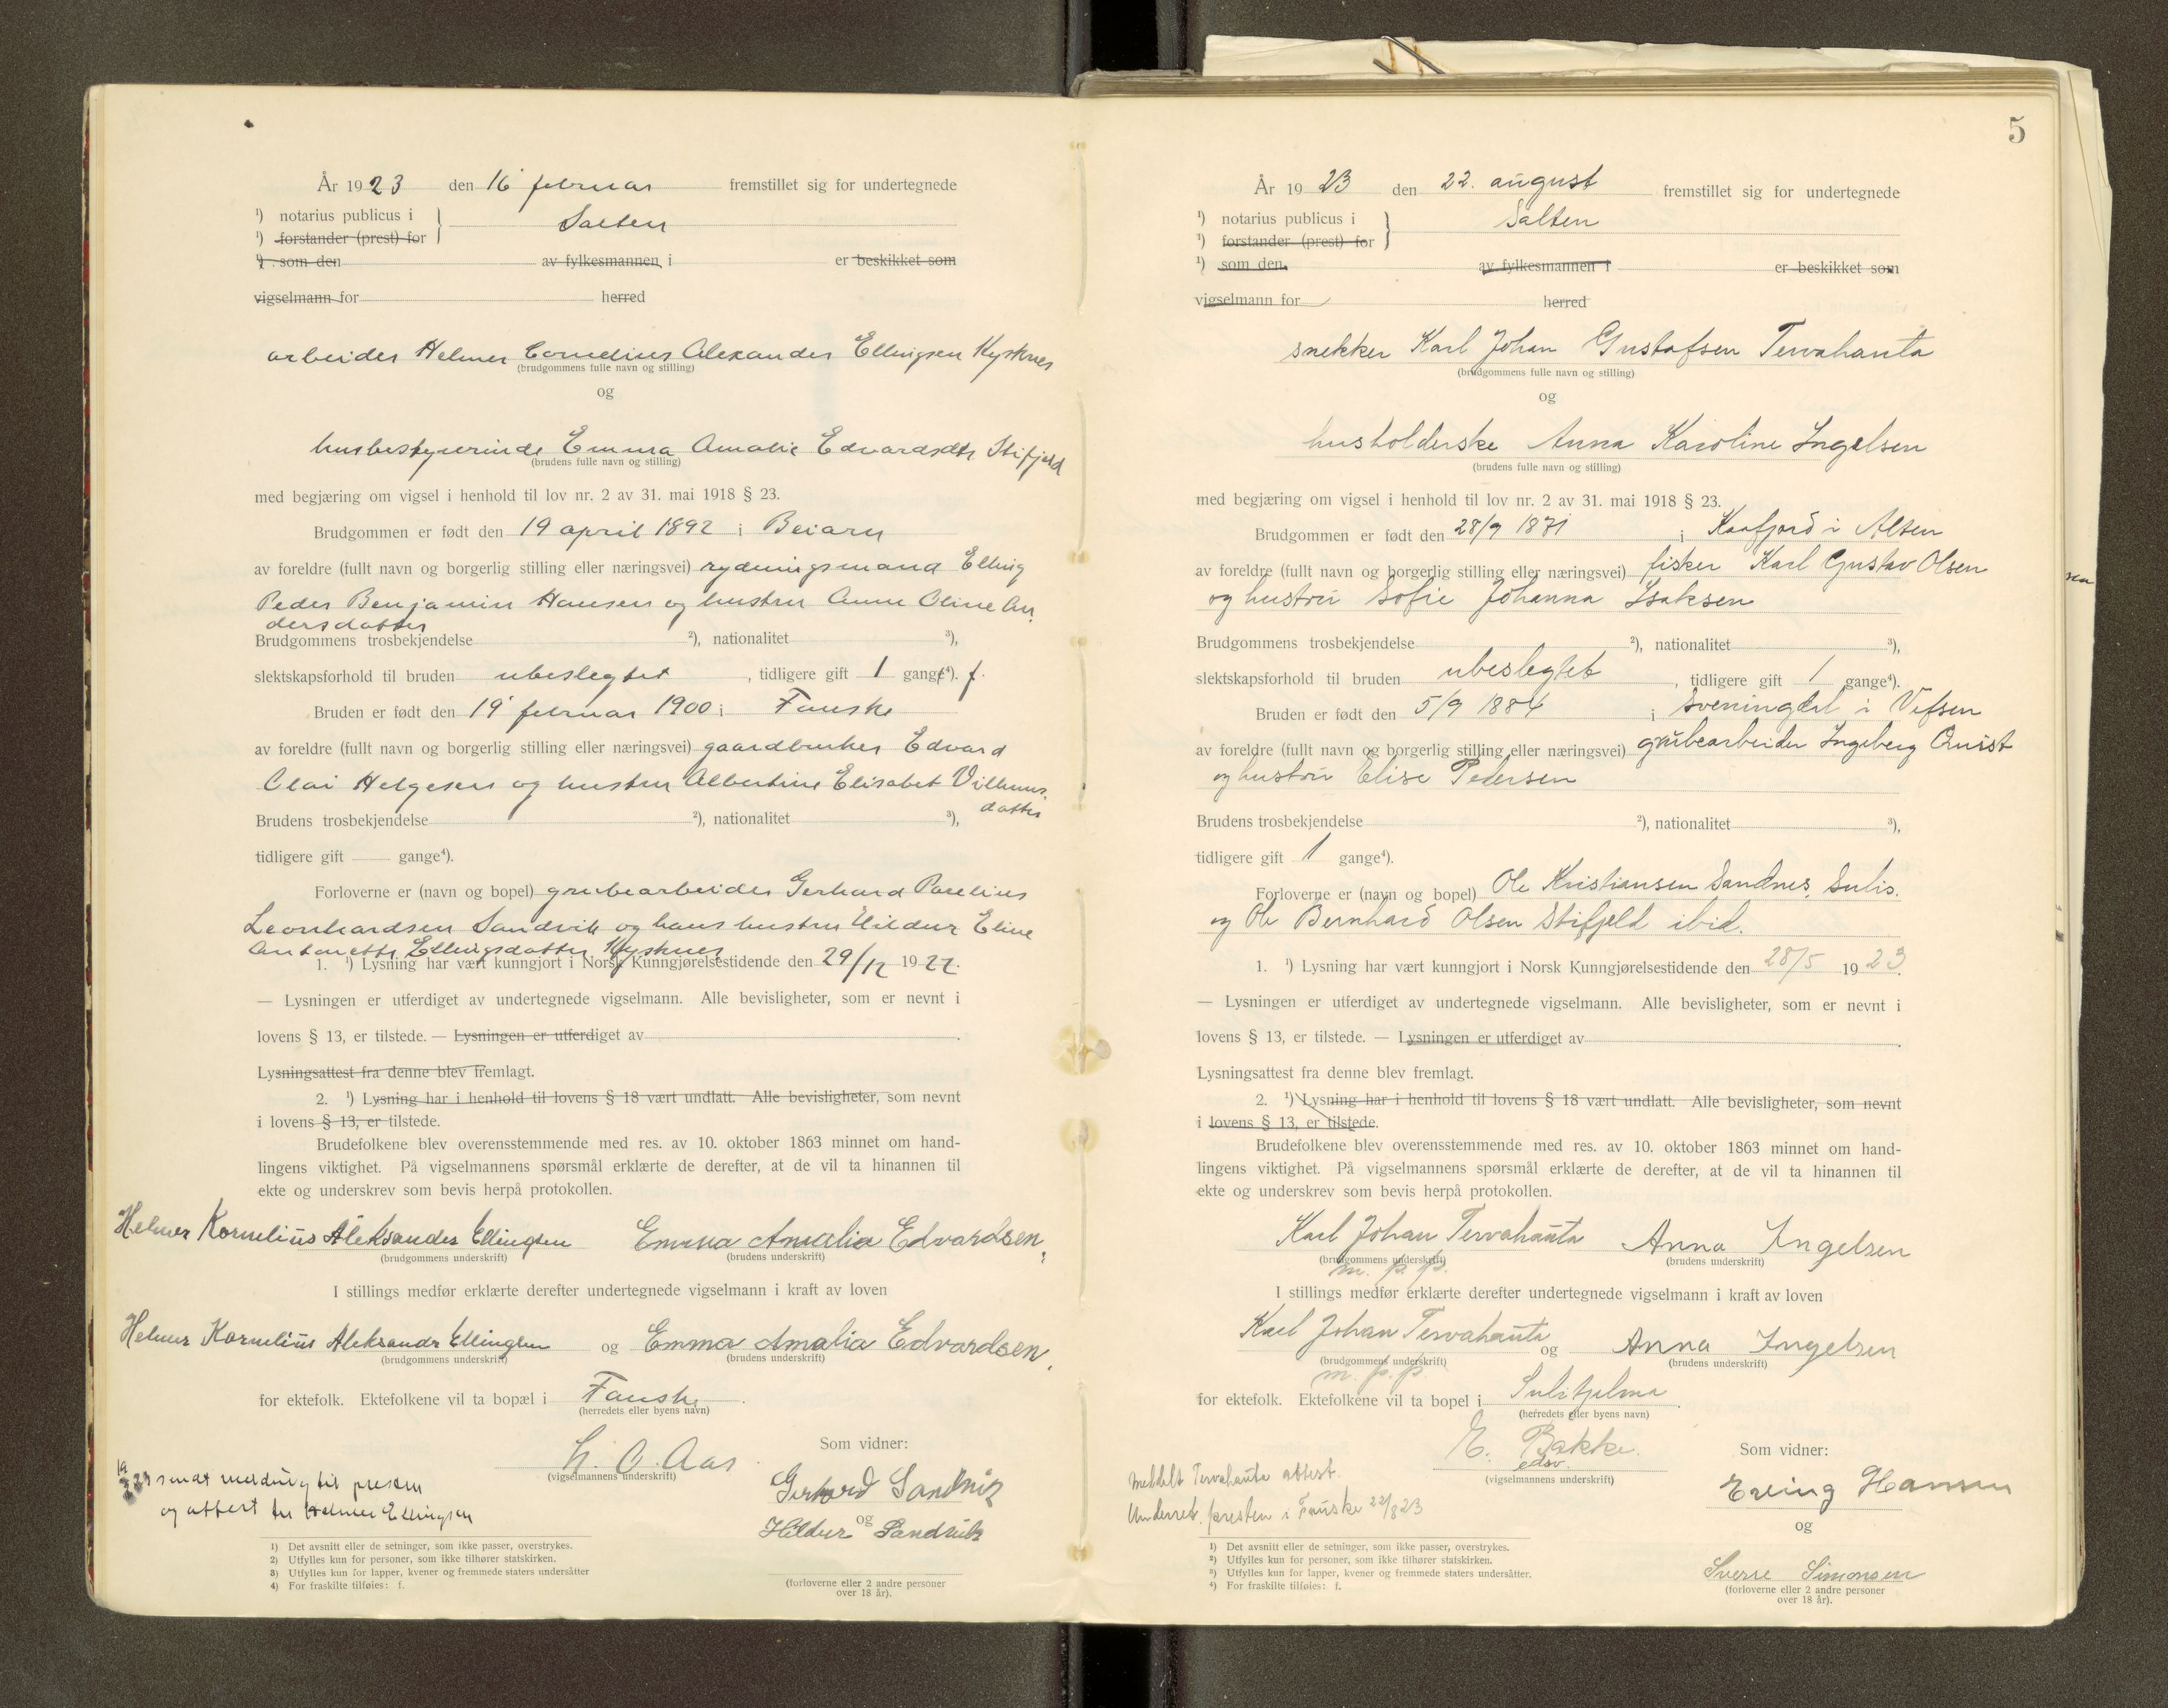 År 1923 den 16 februar fremstillet sig for undertegnede
¹) notarius publicus i
Salten
¹) forstander (prest) for
¹) som den av fylkesmannen i er beskikket som
vigselmann for herred
arbeider Helmer Cornelius Alexander Ellingsen Kysknes
(brudgommens fulle navn og stilling)
og
husbestyrerinde Emma Amalie Edvardsdtr Stifjeld
(brudens fulle navn og stilling)
med begjæring om vigsel i henhold til lov nr. 2 av 31. mai 1918 § 23.
Brudgommen er født den 19 april 1892 i Beiarn
av foreldre (fullt navn og borgerlig stilling eller næringsvei) rydningsmand Elling
Peder Benjamin Hansen og hustru Anne Oline An
dersdatter
Brudgommens trosbekjendelse ²), nationalitet ³),
slektskapsforhold til bruden ubeslegtet, tidligere gift 1 gange⁴). f.
Bruden er født den 19 februar 1900 i Fauske
av foreldre (fullt navn og borgerlig stilling eller næringsvei) gaardbruker Edvard
Olai Helgesen og hustru Albertine Elisabet Vilhelms
datter
Brudens trosbekjendelse ²), nationalitet ³),
tidligere gift — gange⁴).
Forloverne er (navn og bopel) grubearbeider Gerhard Parelius
Leonhardsen Sandvik og hans hustru Hildur Eline
Antonette Ellingsdatter Kysknes
1. ¹) Lysning har vært kunngjort i Norsk Kunngjørelsestidende den 29/12 1922.
— Lysningen er utferdiget av undertegnede vigselmann. Alle bevisligheter, som er nevnt i
lovens § 13, er tilstede. — Lysningen er utferdiget av
Lysningsattest fra denne blev fremlagt.
2. ¹) Lysning har i henhold til lovens § 18 vært undlatt. Alle bevisligheter, som nevnt
i lovens § 13, er tilstede.
Brudefolkene blev overensstemmende med res. av 10. oktober 1863 minnet om hand-
lingens viktighet. På vigselmannens spørsmål erklærte de derefter, at de vil ta hinannen til
ekte og underskrev som bevis herpå protokollen.
Helmer Kornelius Aleksander Ellingsen Emma Amalia Edvardsen,
(brudgommens underskrift) (brudens underskrift)
I stillings medfør erklærte derefter undertegnede vigselmann i kraft av loven
Helmer Kornelius Aleksandr Ellingsen og Emma Amalia Edvardsen,
(brudgommens underskrift) (brudens underskrift)
for ektefolk. Ektefolkene vil ta bopæl i Fauske
(herredets eller byens navn)
Som vidner:
O. Aas
(vigselmannens underskrift)
sendt melding til presten
og attest til Helmer Ellingsen
Gerhard Sandvik
og
Hildur Sandvik
(forloverne eller 2 andre personer
over 18 år).
1) Det avsnitt eller de setninger, som ikke passer, overstrykes.
2) Utfylles kun for personer, som ikke tilhører statskirken.
3) Utfylles kun for lapper, kvener og fremmede staters undersåtter
4) For fraskilte tilføies: f.
5
År 1923 den 22. august fremstillet sig for undertegnede
¹) notarius publicus i
Salten
¹) forstander (prest) for
¹) som den av fylkesmannen i er beskikket som
vigselmann for herred
snekker Karl Johan Gustafsen Tervahauta
(brudgommens fulle navn og stilling)
og
husholderske Anna Karoline Ingelsen
(brudens fulle navn og stilling)
med begjæring om vigsel i henhold til lov nr. 2 av 31. mai 1918 § 23.
Brudgommen er født den 28/9 1871 i Kaafjord i Alten
av foreldre (fullt navn og borgerlig stilling eller næringsvei) fisker Karl Gustav Olsen
og hustru Sofie Johanna Isaksen
Brudgommens trosbekjendelse ²), nationalitet ³),
slektskapsforhold til bruden ubeslegtet, tidligere gift 1 gange⁴).
Bruden er født den 5/9 1884 i Sveningdal i Vefsen
av foreldre (fullt navn og borgerlig stilling eller næringsvei) grubearbeider Ingeberg Quist
og hustru Elise Pedersen
Brudens trosbekjendelse ²), nationalitet ³),
tidligere gift 1 gange⁴).
Forloverne er (navn og bopel) Ole Kristiansen Sandnes, Sulis.
og Ole Bernhard Olsen Stifjeld ibid.
1. ¹) Lysning har vært kunngjort i Norsk Kunngjørelsestidende den 28/5 1923.
— Lysningen er utferdiget av undertegnede vigselmann. Alle bevisligheter, som er nevnt i
lovens § 13, er tilstede. — Lysningen er utferdiget av
Lysningsattest fra denne blev fremlagt.
2. ¹) Lysning har i henhold til lovens § 18 vært undlatt. Alle bevisligheter, som nevnt
i lovens § 13, er tilstede.
Brudefolkene blev overensstemmende med res. av 10. oktober 1863 minnet om hand-
lingens viktighet. På vigselmannens spørsmål erklærte de derefter, at de vil ta hinannen til
ekte og underskrev som bevis herpå protokollen.
Karl Johan Tervahauta Anna Ingelsen
(brudgommens underskrift) (brudens underskrift)
m. p. p.
I stillings medfør erklærte derefter undertegnede vigselmann i kraft av loven
Karl Johan Tervahauta og Anna Ingelsen
(brudgommens underskrift) (brudens underskrift)
m. p. p.
for ektefolk. Ektefolkene vil ta bopel i Sulitjelma
(herredets eller byens navn)
E. Bakke
edsv.
(vigselmannens underskrift)
Som vidner:
Meddelt Tervahauta attest.
Underret. presten i Fauske 22/8 23
Erling Hansen
og
Sverre Simonsen
(forloverne eller 2 andre personer
over 18 år).
1) Det avsnitt eller de setninger, som ikke passer, overstrykes.
2) Utfylles kun for personer, som ikke tilhører statskirken.
3) Utfylles kun for lapper, kvener og fremmede staters undersåtter.
4) For fraskilte tilføies: f.